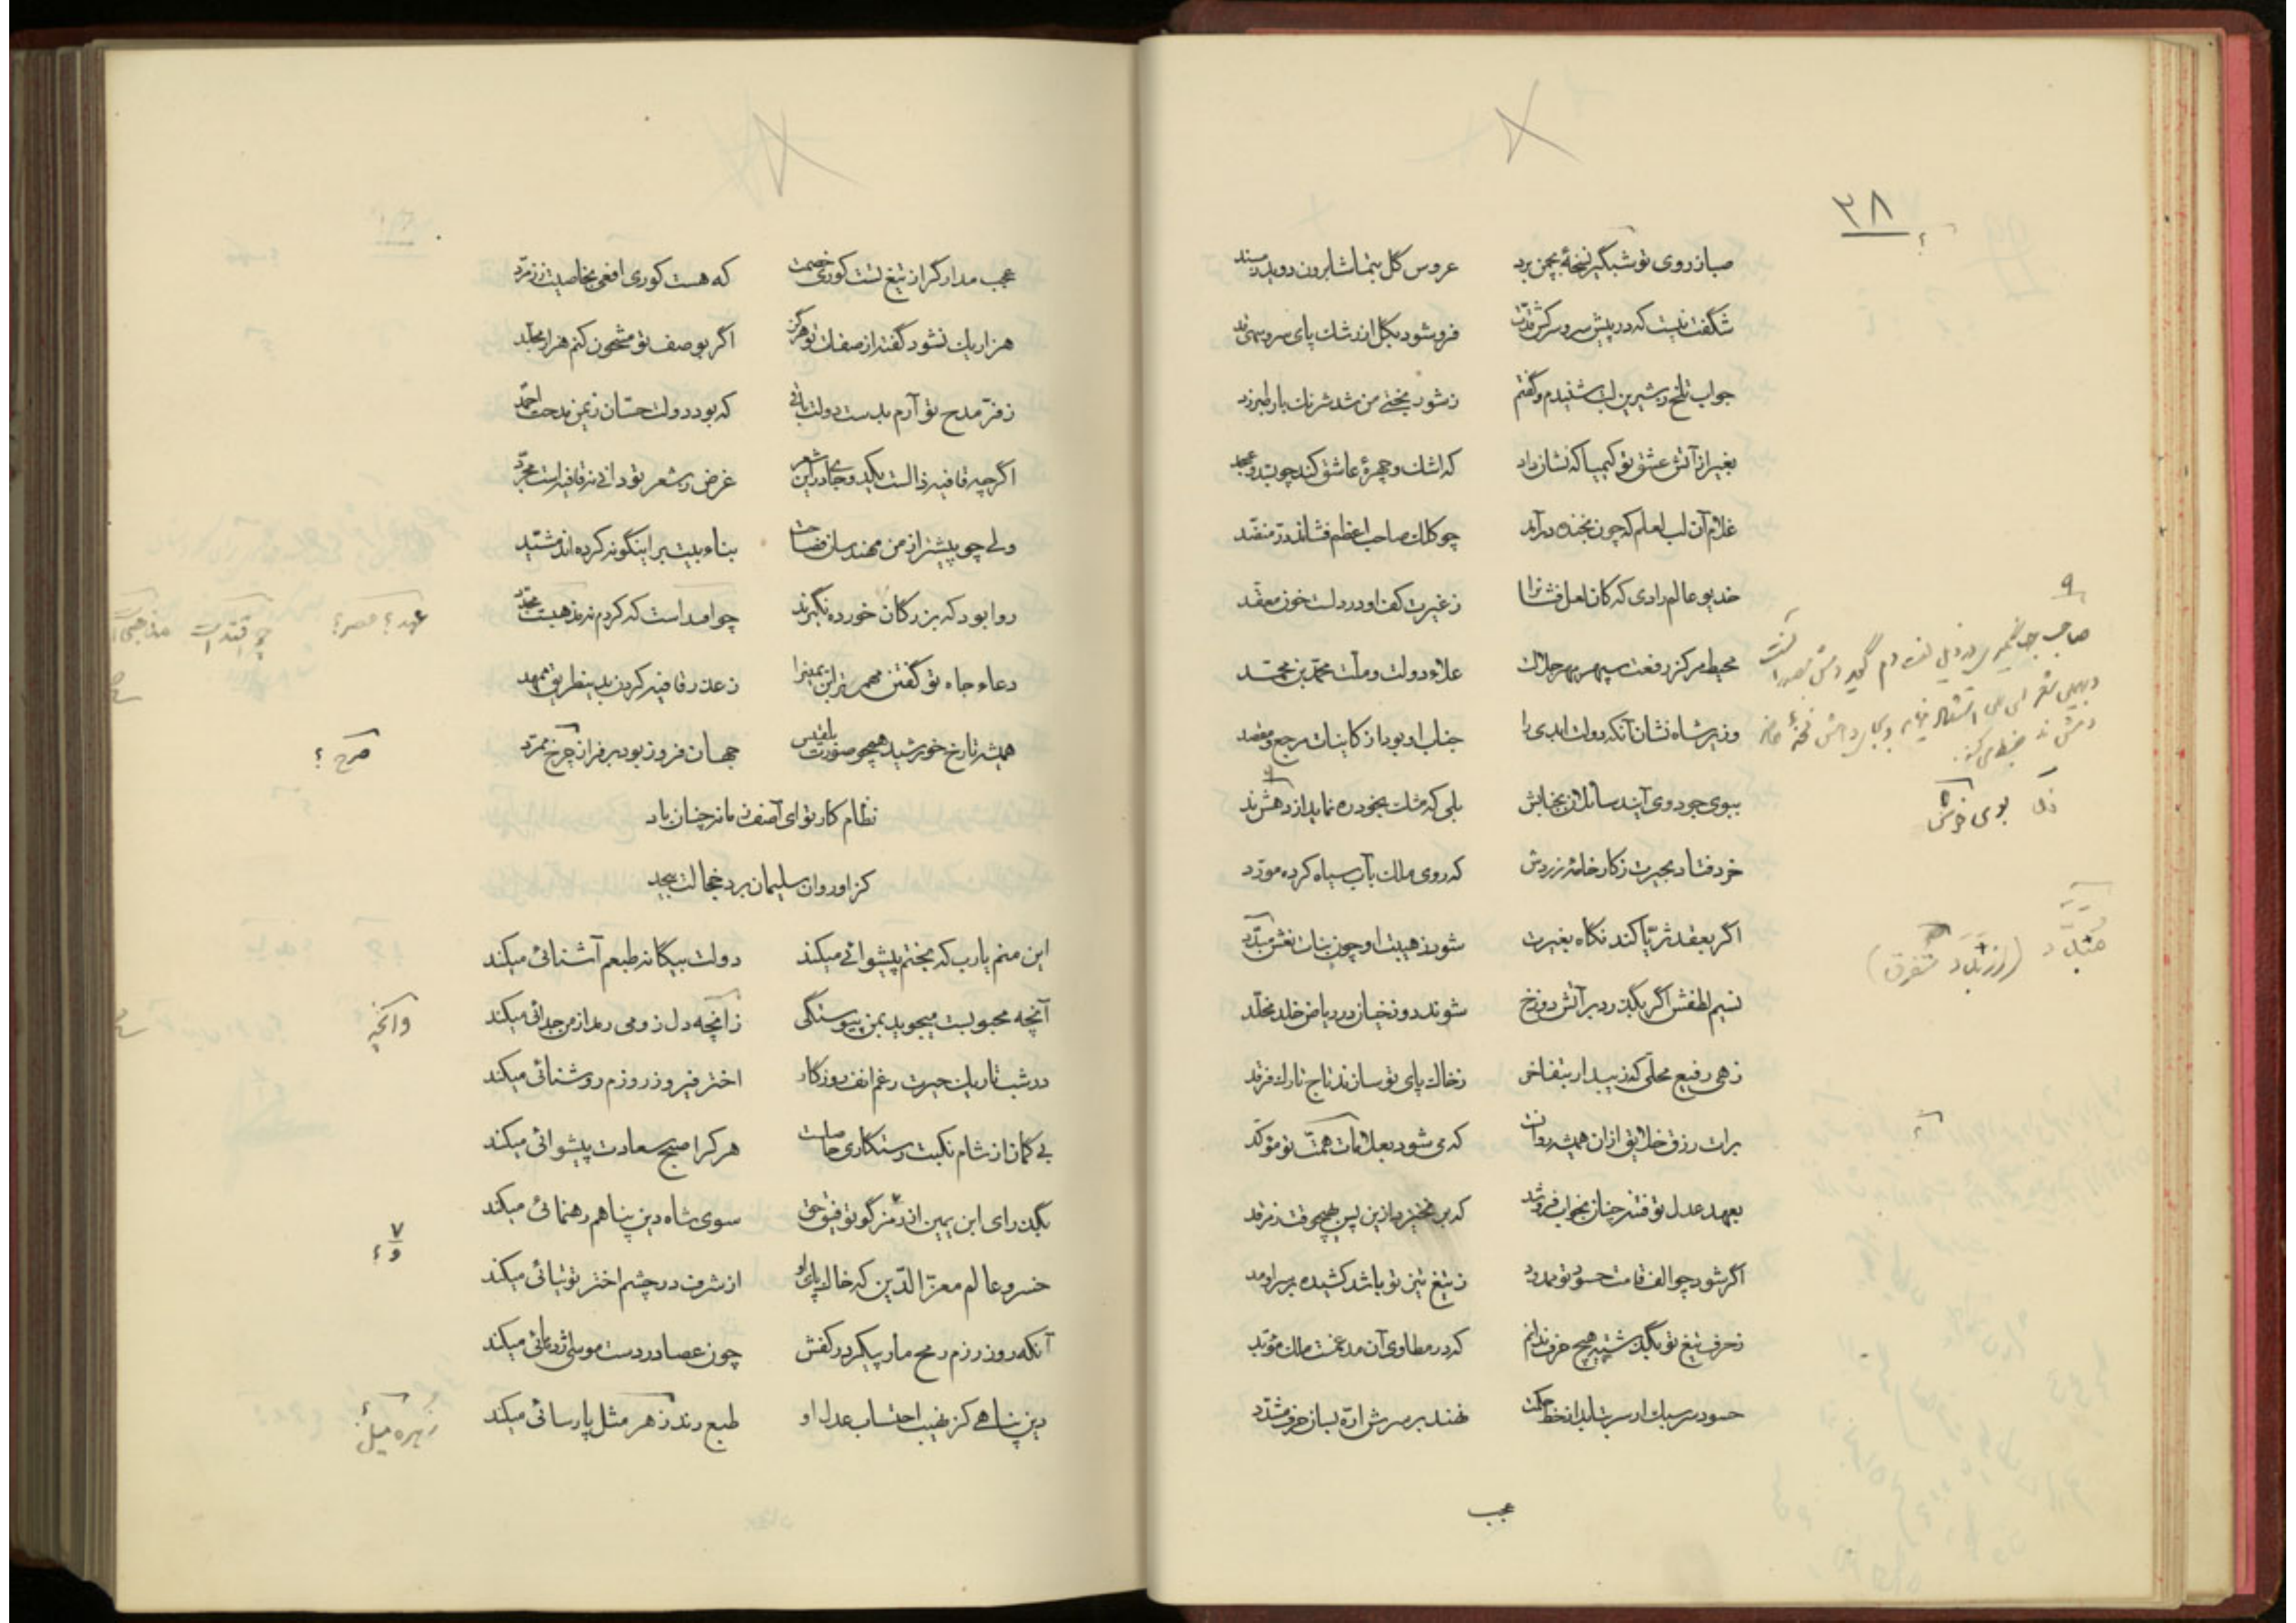 ۳۸
صبا ز روی تو شبگیر نسخهٔ بچمن برد عروس گل بتماشا برون دوید ز مسند
شگفت نیست که در پیش سرو سرکش قدت فرو شود بگل از رشک پای سرو سهی قد
جواب تلخ ز شیرین لبت شنیدم و گفتم ز شور بختی من شد شرنک بار طبرزد
بغیر از آتش عشق تو کیمیا که نشان داد که اشک و چهرهٔ عاشق کند چو بسد و عسجد
غلام آن لب لعلم که چون بخنده درآید چو کلک صاحب اعظم فشاند در منضد
خدیو عالم رادی که کان لعل فشان را ز غیرت کف او در دلست خون معقد
محیط مرکز رفعت سپهر مهر جلالت علاء دولت و ملت محمد بن محمد
وزیر شاه نشان آنکه دولت ابدی را جناب او بود از کاینات مرجع و مقصد
ببوی جود وی آیند سائلان بجنابش بلی که مشک بخود ره نماید از دهش ند
خرد فتاد بحیرت ز کار خامهٔ زردش که روی ملک بآب سیاه کرده مورد
اگر بعقد ثریا کند نگاه بغیرت شود ز هیبت او چون بنات نعش مبدد
نسیم لطفش اگر بگذرد بر آتش دوزخ شوند دوزخیان در ریاض خلد مخلد
زهی رفیع محلی که زیبد ار بتفاخر ز خاک پای تو سازند تاج تارک فرقد
برات رزق خلایق از آن همیشه روانست که می شود بعلامات همت تو مؤکد
بعهد عدل تو فتنه چنان بخواب فرو شد که بر نخیزد ازین پس هیچ وقت ز مرقد
اگر شود چو الف قامت حسود تو ممدود ز تیغ تیز تو باشد کشیده بر سر او مد
ز حرف تیغ تو بگذشته هیچ حرف ندانم که در مطاوی آن مدغمست ملک مؤید
حسود سر سبک ار سر بتابد از خط حکمت نهند بر سرش اره بسان حرف مشدد
عجب
بوی خوش
(از تبدد متفرق)
عجب مدار گر از تیغ تست کوری خصمت که هست کوری افعی بخاصیت ز زمرد
هزار یک نشود گفته از صفات تو هرگز اگر بوصف تو مشحون کنم هزار مجلد
ز فر مدح تو آرم بدست دولت باقی که بود دولت حسان ز یمن مدحت احمد
اگرچه قافیه ذالست یکدو جای درین شعر غرض ز شعر تو دانی نه قافیه است مجرد
ولی چو پیشتر از من مهندسان فصاحت بناء بیت بر اینگونه کرده اند مشید
روا بود که بزرگان خورده نگیرند چو امد است که کردم نه مذهبیست مجدد
دعاء جاه تو گفتن مهم تر این نمیز را ز عذر قافیه کردن بدینطریق ممهد
همیشه تا رخ خورشید همچو صورت بلقیس جهان فروز بود بر فراز چرخ ممرد
نظام کار تو ای آصف زمانه چنان باد
کز او روان سلیمان برد خجالت بیحد
این منم یارب که بختم پیشوائی میکند دولت بیگانه طبعم آشنائی میکند
آنچه محبوبست میجوید بمن پیوستگی زانچه دل زو می رمد از من جدائی میکند
در شب تاریک حیرت رغم انف روزگار اختر فیروز روزم روشنائی میکند
بی گمان از شام نکبت رستگاری حاصلست هر کرا صبح سعادت پیشوائی میکند
بگذر ای ابن یمین از رمز گو توفیق حق سوی شاه دین پناهم رهنمائی میکند
خسرو عالم معزالدین که خاک پای او از شرف در چشم اختر توتیائی میکند
آنکه روز رزم رمح مار پیکر در کفش چون عصا در دست موسی اژدهائی میکند
دین پناهی کز نهیب احتساب عدل او طبع رند زهر مثل پارسائی میکند
عهد؟ عصر؟
صرح ؟
وانچه